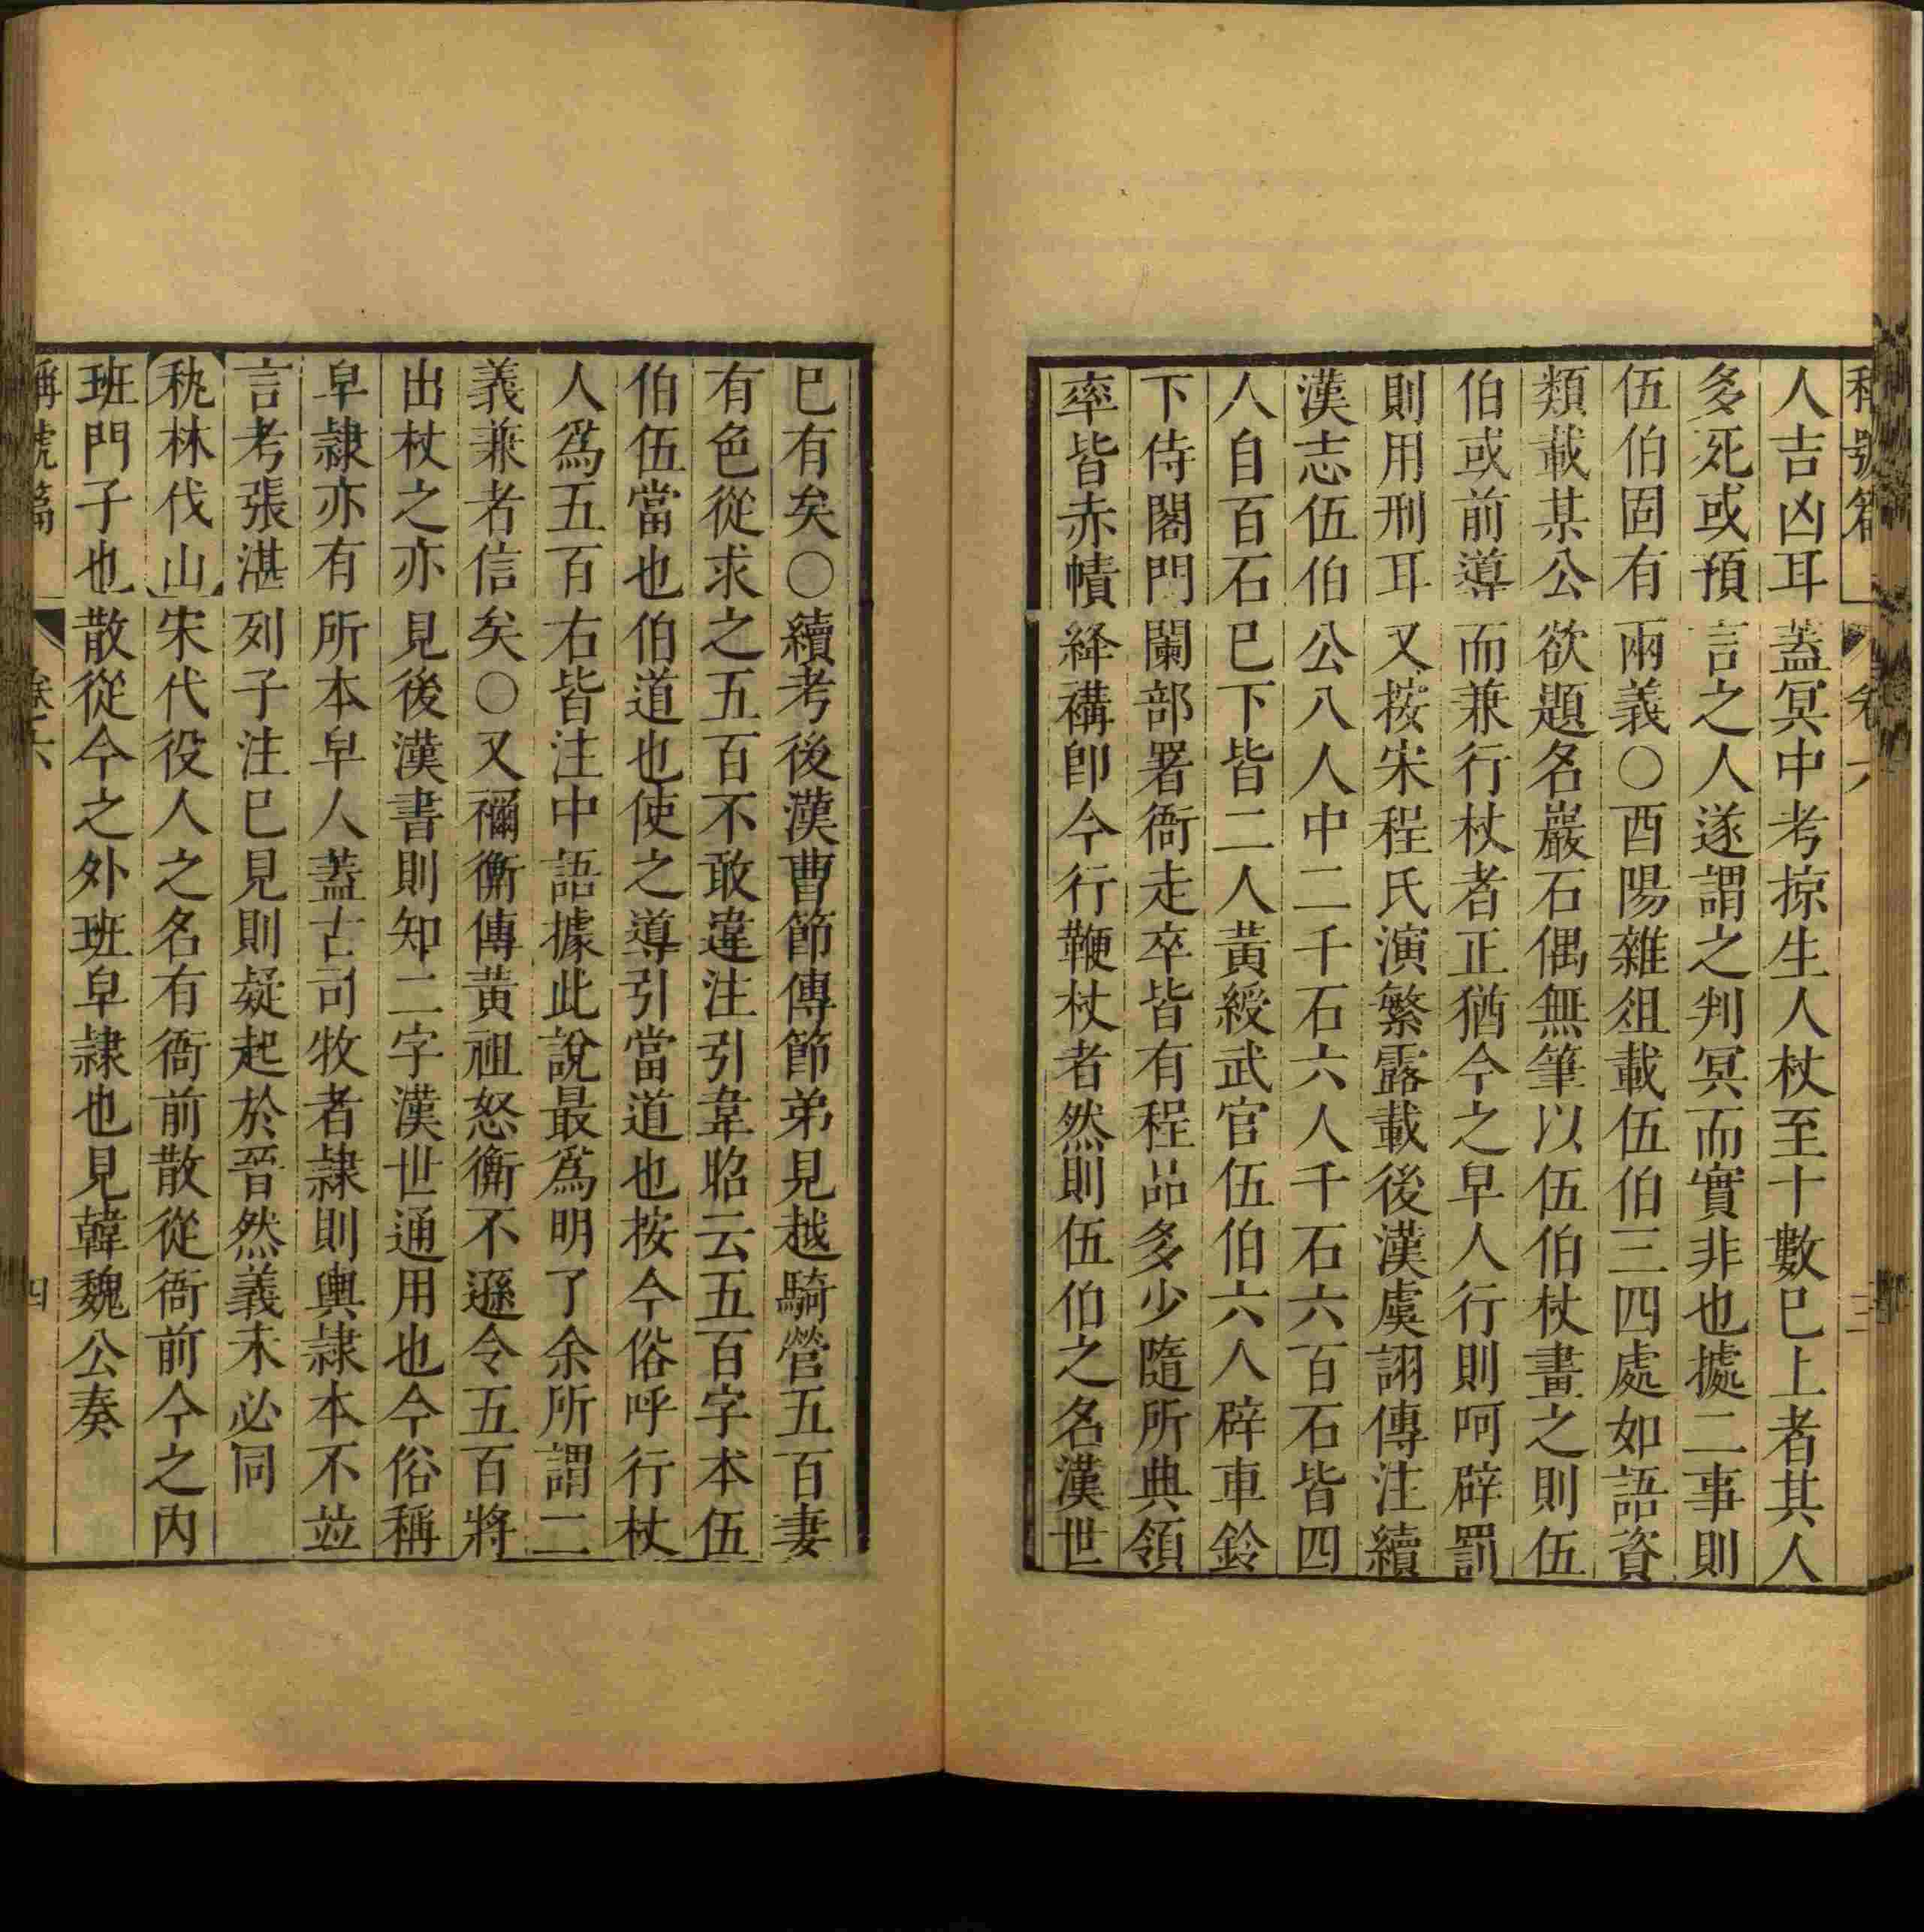 人吉凶耳蓋冥中考掠生人杖至十數巳上者其人
多死或預言之人遂謂之判冥而實非也據二事則
伍伯固有兩義○酉陽雜俎載伍伯三四處如語資
類載某公欲題名巖石偶無筆以伍伯杖畫之則伍
伯或前導而兼行杖者正猶今之皁人行則呵辟罰
則用刑耳又按宋程氏演繁露載後漢虞詡傳注續
漢志伍伯公八人中二千石六人千石六百石皆四
人自百石巳下皆二人黃綬武官伍伯六人辟車鈴
下侍閤門闌部署衙走卒皆有程品多少隨所典領
率皆赤幘絳褠卽今行鞭杖者然則伍伯之名漢世
巳有矣○續考後漢曹節傳節弟見越騎營五百妻
有色從求之五百不敢違注引韋昭云五百字本伍
伯伍當也伯道也使之導引當道也按今俗呼行杖
人爲五百右皆注中語據此說最爲明了余所謂二
義兼者信矣○又禰衡傳黃祖怒衡不遜令五百將
出杖之亦見後漢書則知二字漢世通用也今俗稱
皁隷亦有所本皁人蓋古司牧者隷則輿隷本不並
言考張湛列子注巳見則疑起於晉然義未必同
秇林伐山宋代役人之名有衙前散從衙前今之内
班門子也散從今之外班皁隷也見韓魏公奏
稱號篇 卷六 四